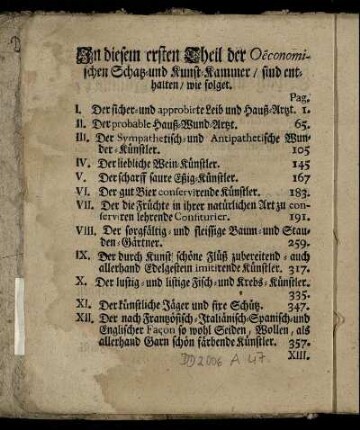 In diesem ersten Theil der Oeconomi-
schen Schatz-und Kunst-Kammer / sind ent-
halten / wie folget.
Pag.
I. Der sicher-und approbirte Leib und Hauß-Artzt. 1.
II. Der probable Hauß-Wund-Artzt. 65.
III. Der Sympathetisch-und Antipathetische Wun-
der-Künstler. 105
IV. Der liebliche Wein-Künstler. 145
V. Der scharff saure Eßig-Künstler. 167
VI. Der gut Bier conservirende Künstler. 183.
VII. Der die Früchte in ihrer natürlichen Art zu con-
serviren lehrende Confiturier. 191.
VIII. Der sorgfältig-und fleissige Baum-und Stau-
den-Gärtner. 259.
IX. Der durch Kunst schöne Flüß zubereitend-auch
allerhand Edelgestein imitirende Künstler. 317.
X. Der lustig-und listige Fisch-und Krebs-Künstler.
335.
XI. Der künstliche Jäger und fixe Schütz. 347.
XII. Der nach Frantzösisch-Italiänisch-Spanisch-und
Englischer Façon so wohl Seiden, Wollen, als
allerhand Garn schön färbende Künstler. 357.
XIII.
DD2006 A 47